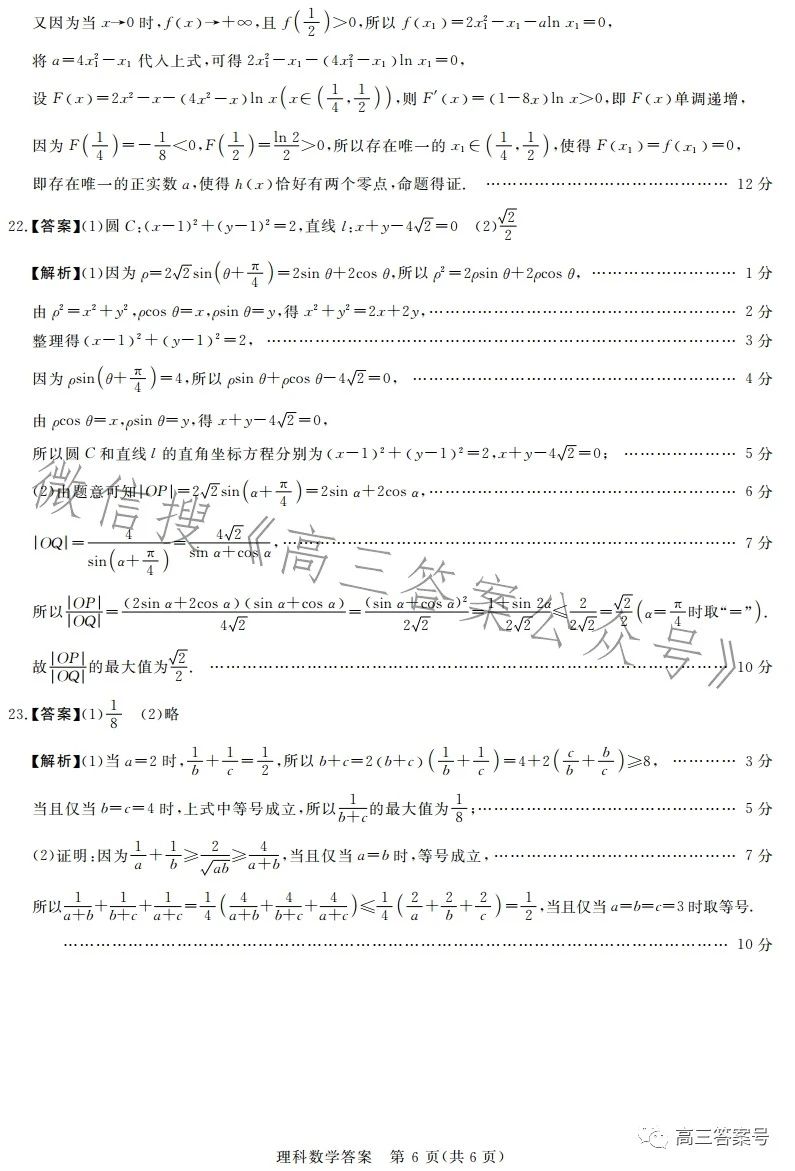 又因为当 x→0 时,f(x)→+∞,且 f(1/2)>0,所以 f(x₁)=2x₁²-x₁-aln x₁=0,
将 a=4x₁²-x₁ 代入上式,可得 2x₁²-x₁-(4x₁²-x₁)ln x₁=0,
设 F(x)=2x²-x-(4x²-x)ln x(x∈(1/4,1/2)),则 F′(x)=(1-8x)ln x>0,即 F(x)单调递增,
因为 F(1/4)=-1/8<0,F(1/2)=ln 2/2>0,所以存在唯一的 x₁∈(1/4,1/2),使得 F(x₁)=f(x₁)=0,
即存在唯一的正实数 a,使得 h(x)恰好有两个零点,命题得证. ………………………………………… 12 分
22.【答案】(1)圆 C:(x-1)²+(y-1)²=2,直线 l:x+y-4√2=0 (2)√2/2
【解析】(1)因为 ρ=2√2sin(θ+π/4)=2sin θ+2cos θ,所以 ρ²=2ρsin θ+2ρcos θ, ……………………… 1 分
由 ρ²=x²+y²,ρcos θ=x,ρsin θ=y,得 x²+y²=2x+2y,………………………………………………… 2 分
整理得(x-1)²+(y-1)²=2, ……………………………………………………………………………… 3 分
因为 ρsin(θ+π/4)=4,所以 ρsin θ+ρcos θ-4√2=0, …………………………………………………… 4 分
由 ρcos θ=x,ρsin θ=y,得 x+y-4√2=0,
所以圆 C 和直线 l 的直角坐标方程分别为(x-1)²+(y-1)²=2,x+y-4√2=0; ………………… 5 分
(2)由题意可知|OP|=2√2sin(α+π/4)=2sin α+2cos α,………………………………………………… 6 分
|OQ|=4/sin(α+π/4)=4√2/(sin α+cos α),………………………………………………………………………… 7 分
所以|OP|/|OQ|=(2sin α+2cos α)(sin α+cos α)/4√2=(sin α+cos α)²/2√2=(1+sin 2α)/2√2≤2/2√2=√2/2(α=π/4时取“=”).
故|OP|/|OQ|的最大值为√2/2. ……………………………………………………………………………………… 10 分
23.【答案】(1)1/8 (2)略
【解析】(1)当 a=2 时,1/b+1/c=1/2,所以 b+c=2(b+c)(1/b+1/c)=4+2(c/b+b/c)≥8, ………… 3 分
当且仅当 b=c=4 时,上式中等号成立,所以1/(b+c)的最大值为1/8;………………………………………… 5 分
(2)证明:因为1/a+1/b≥2/√ab≥4/(a+b),当且仅当 a=b 时,等号成立,……………………………………… 7 分
所以1/(a+b)+1/(b+c)+1/(a+c)=1/4(4/(a+b)+4/(b+c)+4/(a+c))≤1/4(2/a+2/b+2/c)=1/2,当且仅当 a=b=c=3 时取等号.
………………………………………………………………………………………………………………… 10 分
微信搜《高三答案公众号》
高三答案号
理科数学答案 第 6 页(共 6 页)